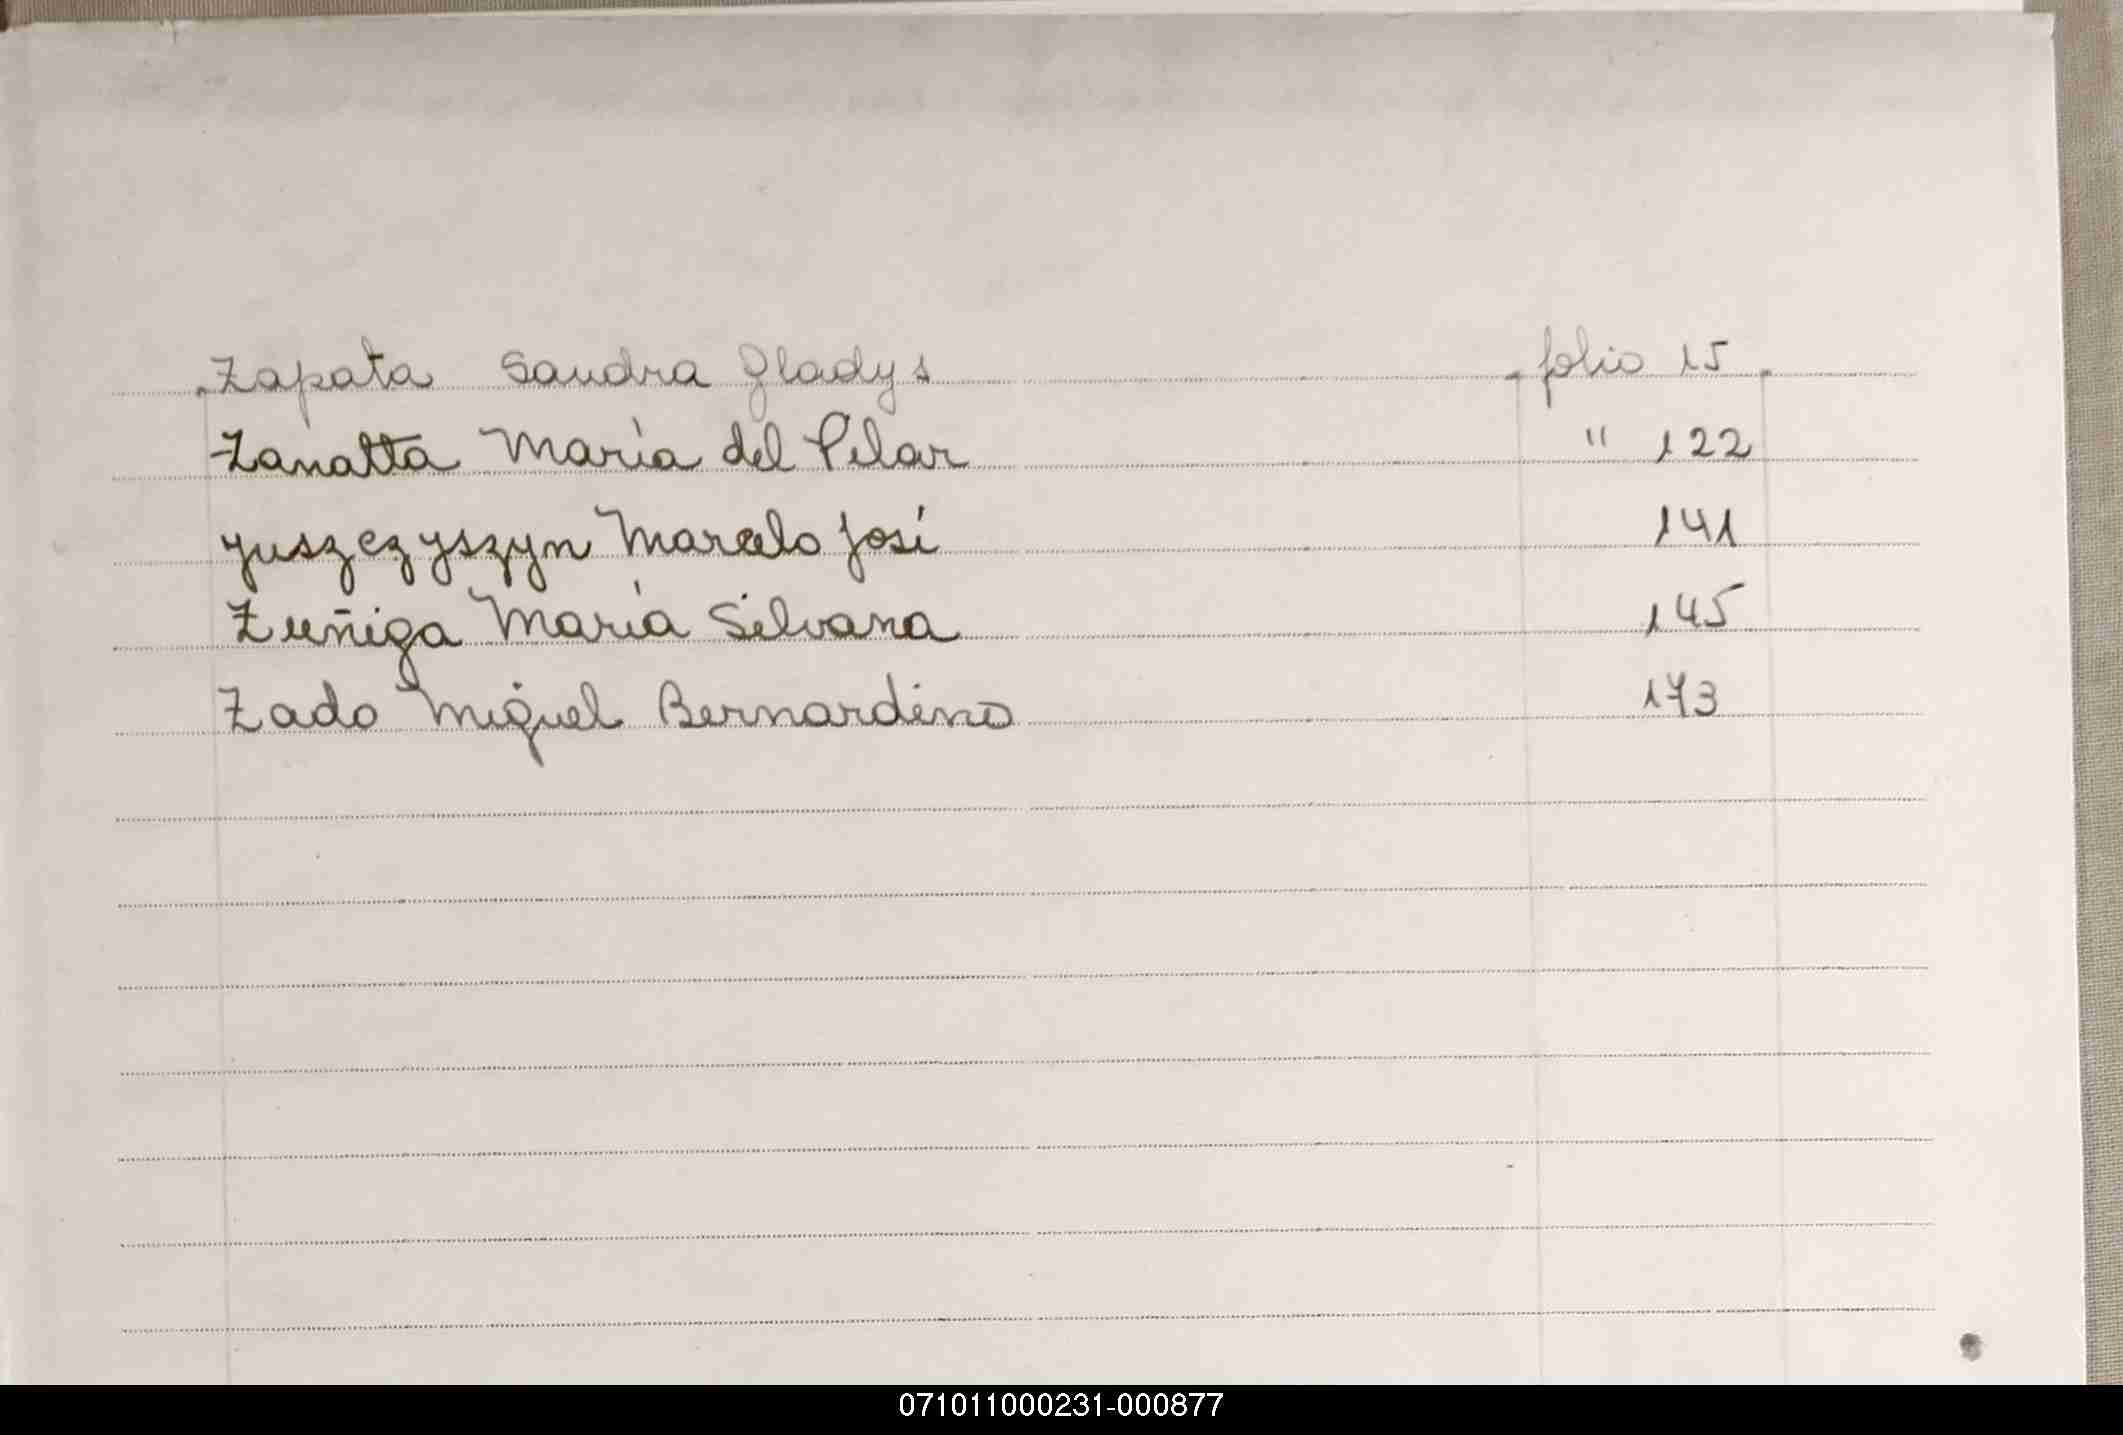 Zapata Sandra Gladys folio 15
Zanatta María del Pilar " 122
Yuszczyszyn Marcelo José 141
Zuñiga María Silvana 145
Zado Miguel Bernardino 173
071011000231-000877